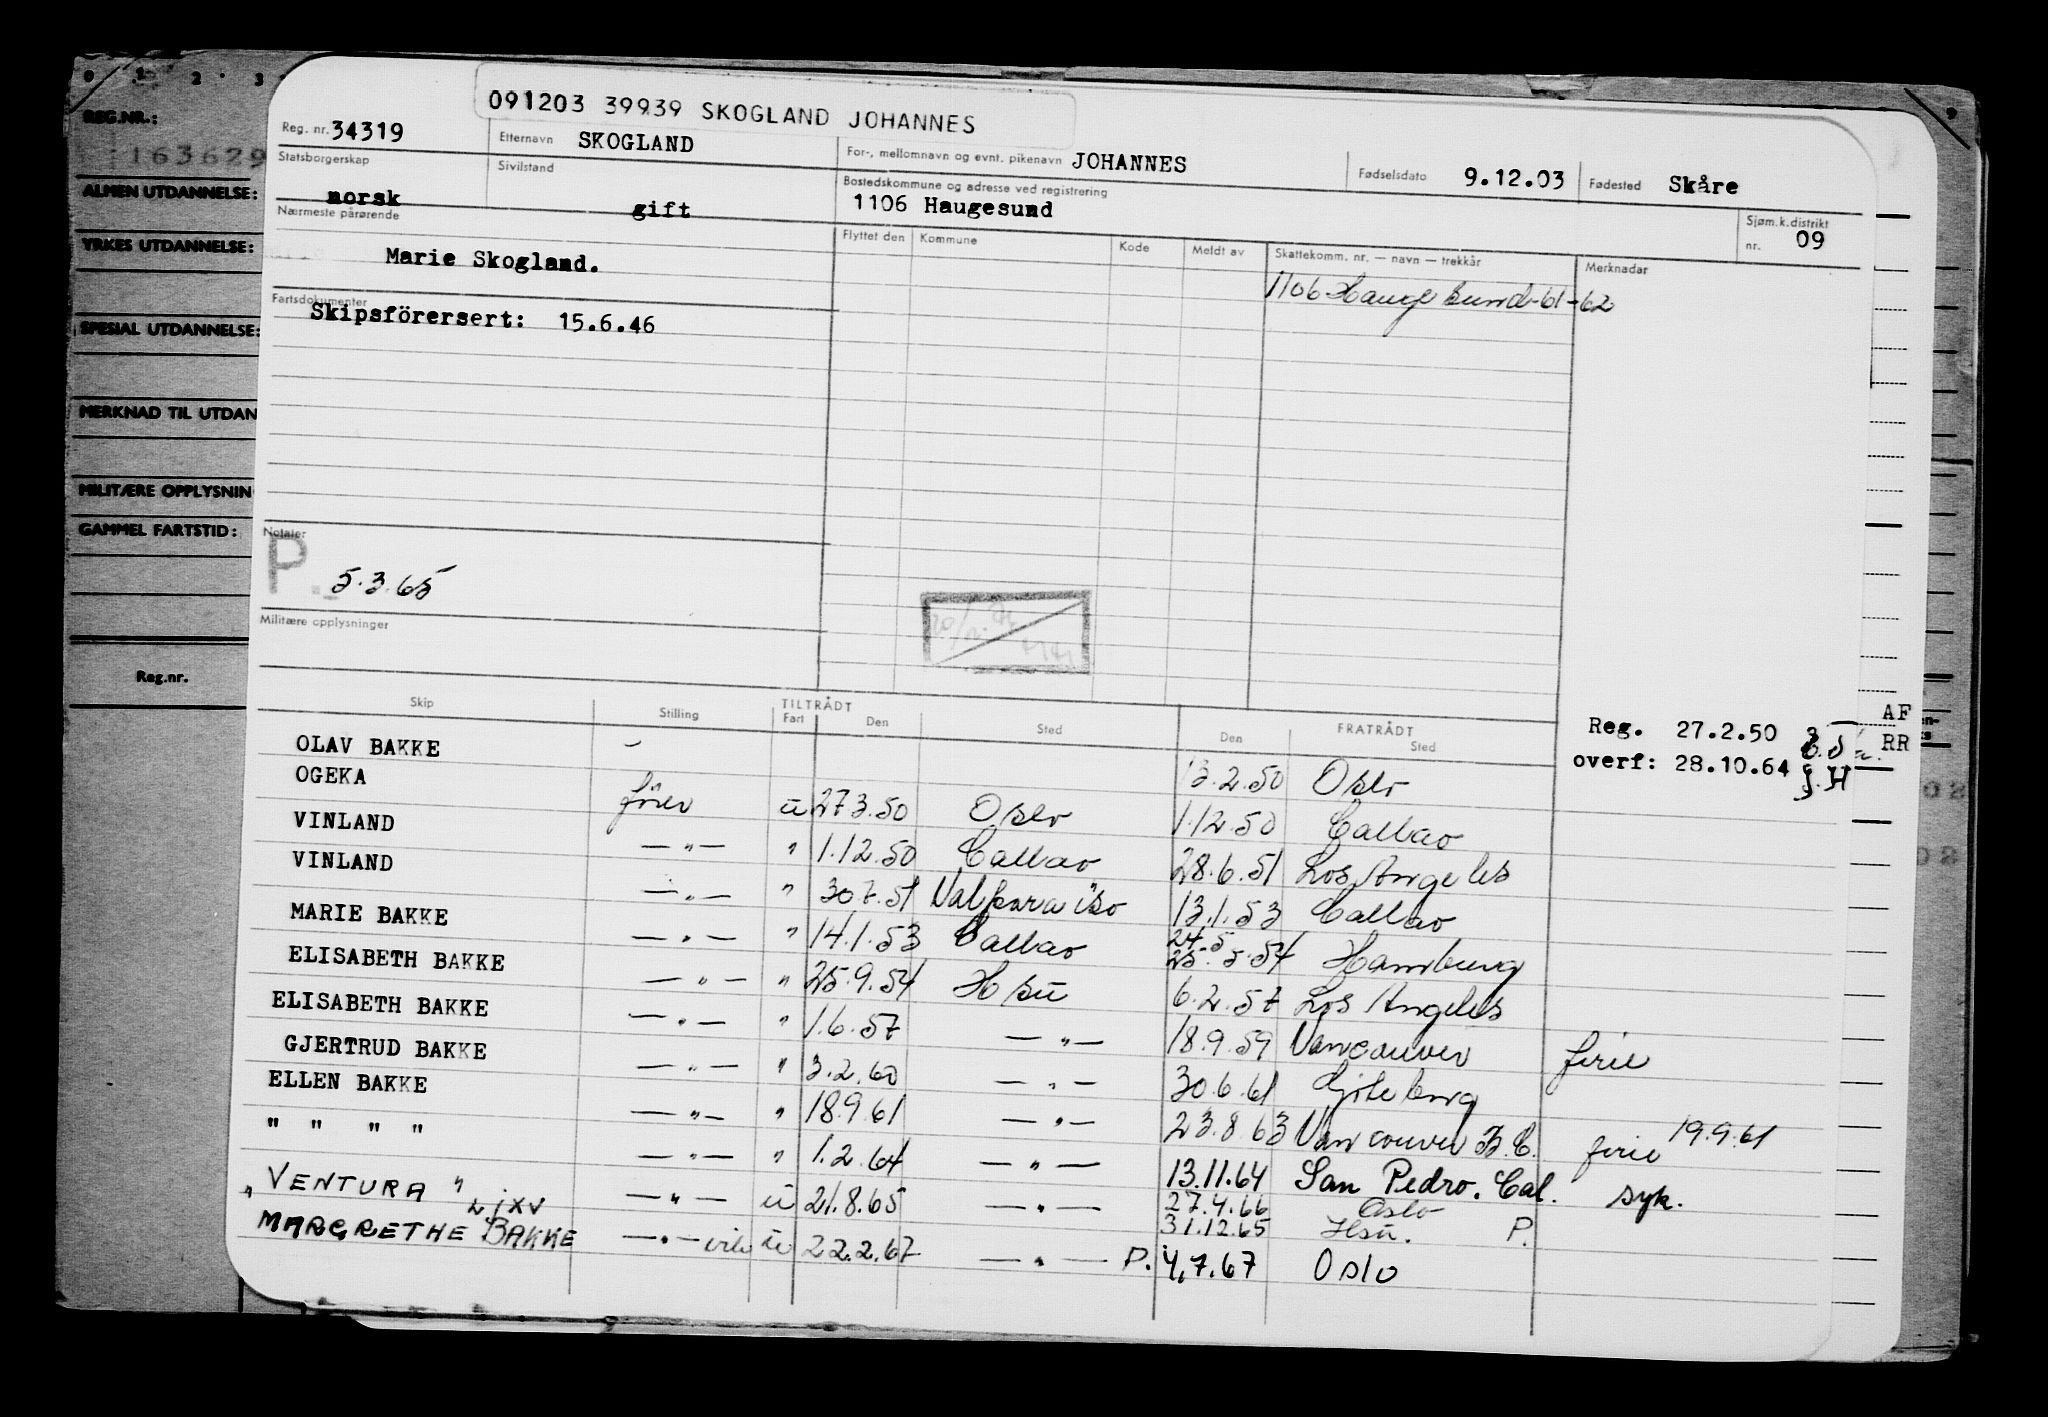 0 1 2 3
9
REG.NR.:
163629
ALMEN UTDANNELSE:
YRKES UTDANNELSE:
SPESIAL UTDANNELSE:
MERKNAD TIL UTDAN
MILITÆRE OPPLYSNIN
GAMMEL FARTSTID:
Reg.nr.
091203 39939 SKOGLAND JOHANNES
Reg. nr. 34319 Etternavn SKOGLAND For-, mellomnavn og evnt. pikenavn JOHANNES Fødselsdato 9.12.03 Fødested Skåre
Statsborgerskap norsk Sivilstand gift Bostedskommune og adresse ved registrering 1106 Haugesund Sjøm.k.distrikt nr. 09
Nærmeste pårørende Flyttet den Kommune Kode Meldt av Skattekomm. nr. — navn — trekkår Merknadar
Marie Skogland.
1106 Haugesund-61-62
Fartsdokumenter
Skipsförersert: 15.6.46
Notater
P. 5.3.65
Militære opplysninger
Skip Stilling TILTRÅDT Fart Den Sted FRATRÅDT Den Sted
Reg. 27.2.50
overf: 28.10.64 J.H
AF
RR
OLAV BAKKE - 13.2.50 Oslo
OGEKA förer u 27.3.50 Oslo 1.12.50 Callao
VINLAND — " — " 1.12.50 Callao 28.6.51 Los Angeles
VINLAND — " — " 30.7.51 Valparaiso 13.1.53 Callao
MARIE BAKKE — " — " 14.1.53 Callao 24.5 25.5.54 Hamburg
ELISABETH BAKKE — " — " 25.9.54 Hsu 6.2.57 Los Angeles
ELISABETH BAKKE — " — " 1.6.57 — " — 18.9.59 Vancouver ferie
GJERTRUD BAKKE — " — " 3.2.60 — " — 30.6.61 Göteborg
ELLEN BAKKE — " — " 18.9.61 — " — 23.8.63 Vancouver B.C. ferie 19.9.61
" " " " — " — " 1.2.64 — " — 13.11.64 San Pedro. Cal. syk.
"VENTURA" LJXV — " — u 21.8.65 — " — 27.4.66 Oslo 31.12.65 Hsu. P.
MARGRETHE BAKKE — " — u 22.2.67 — " — P. 4.7.67 Oslo